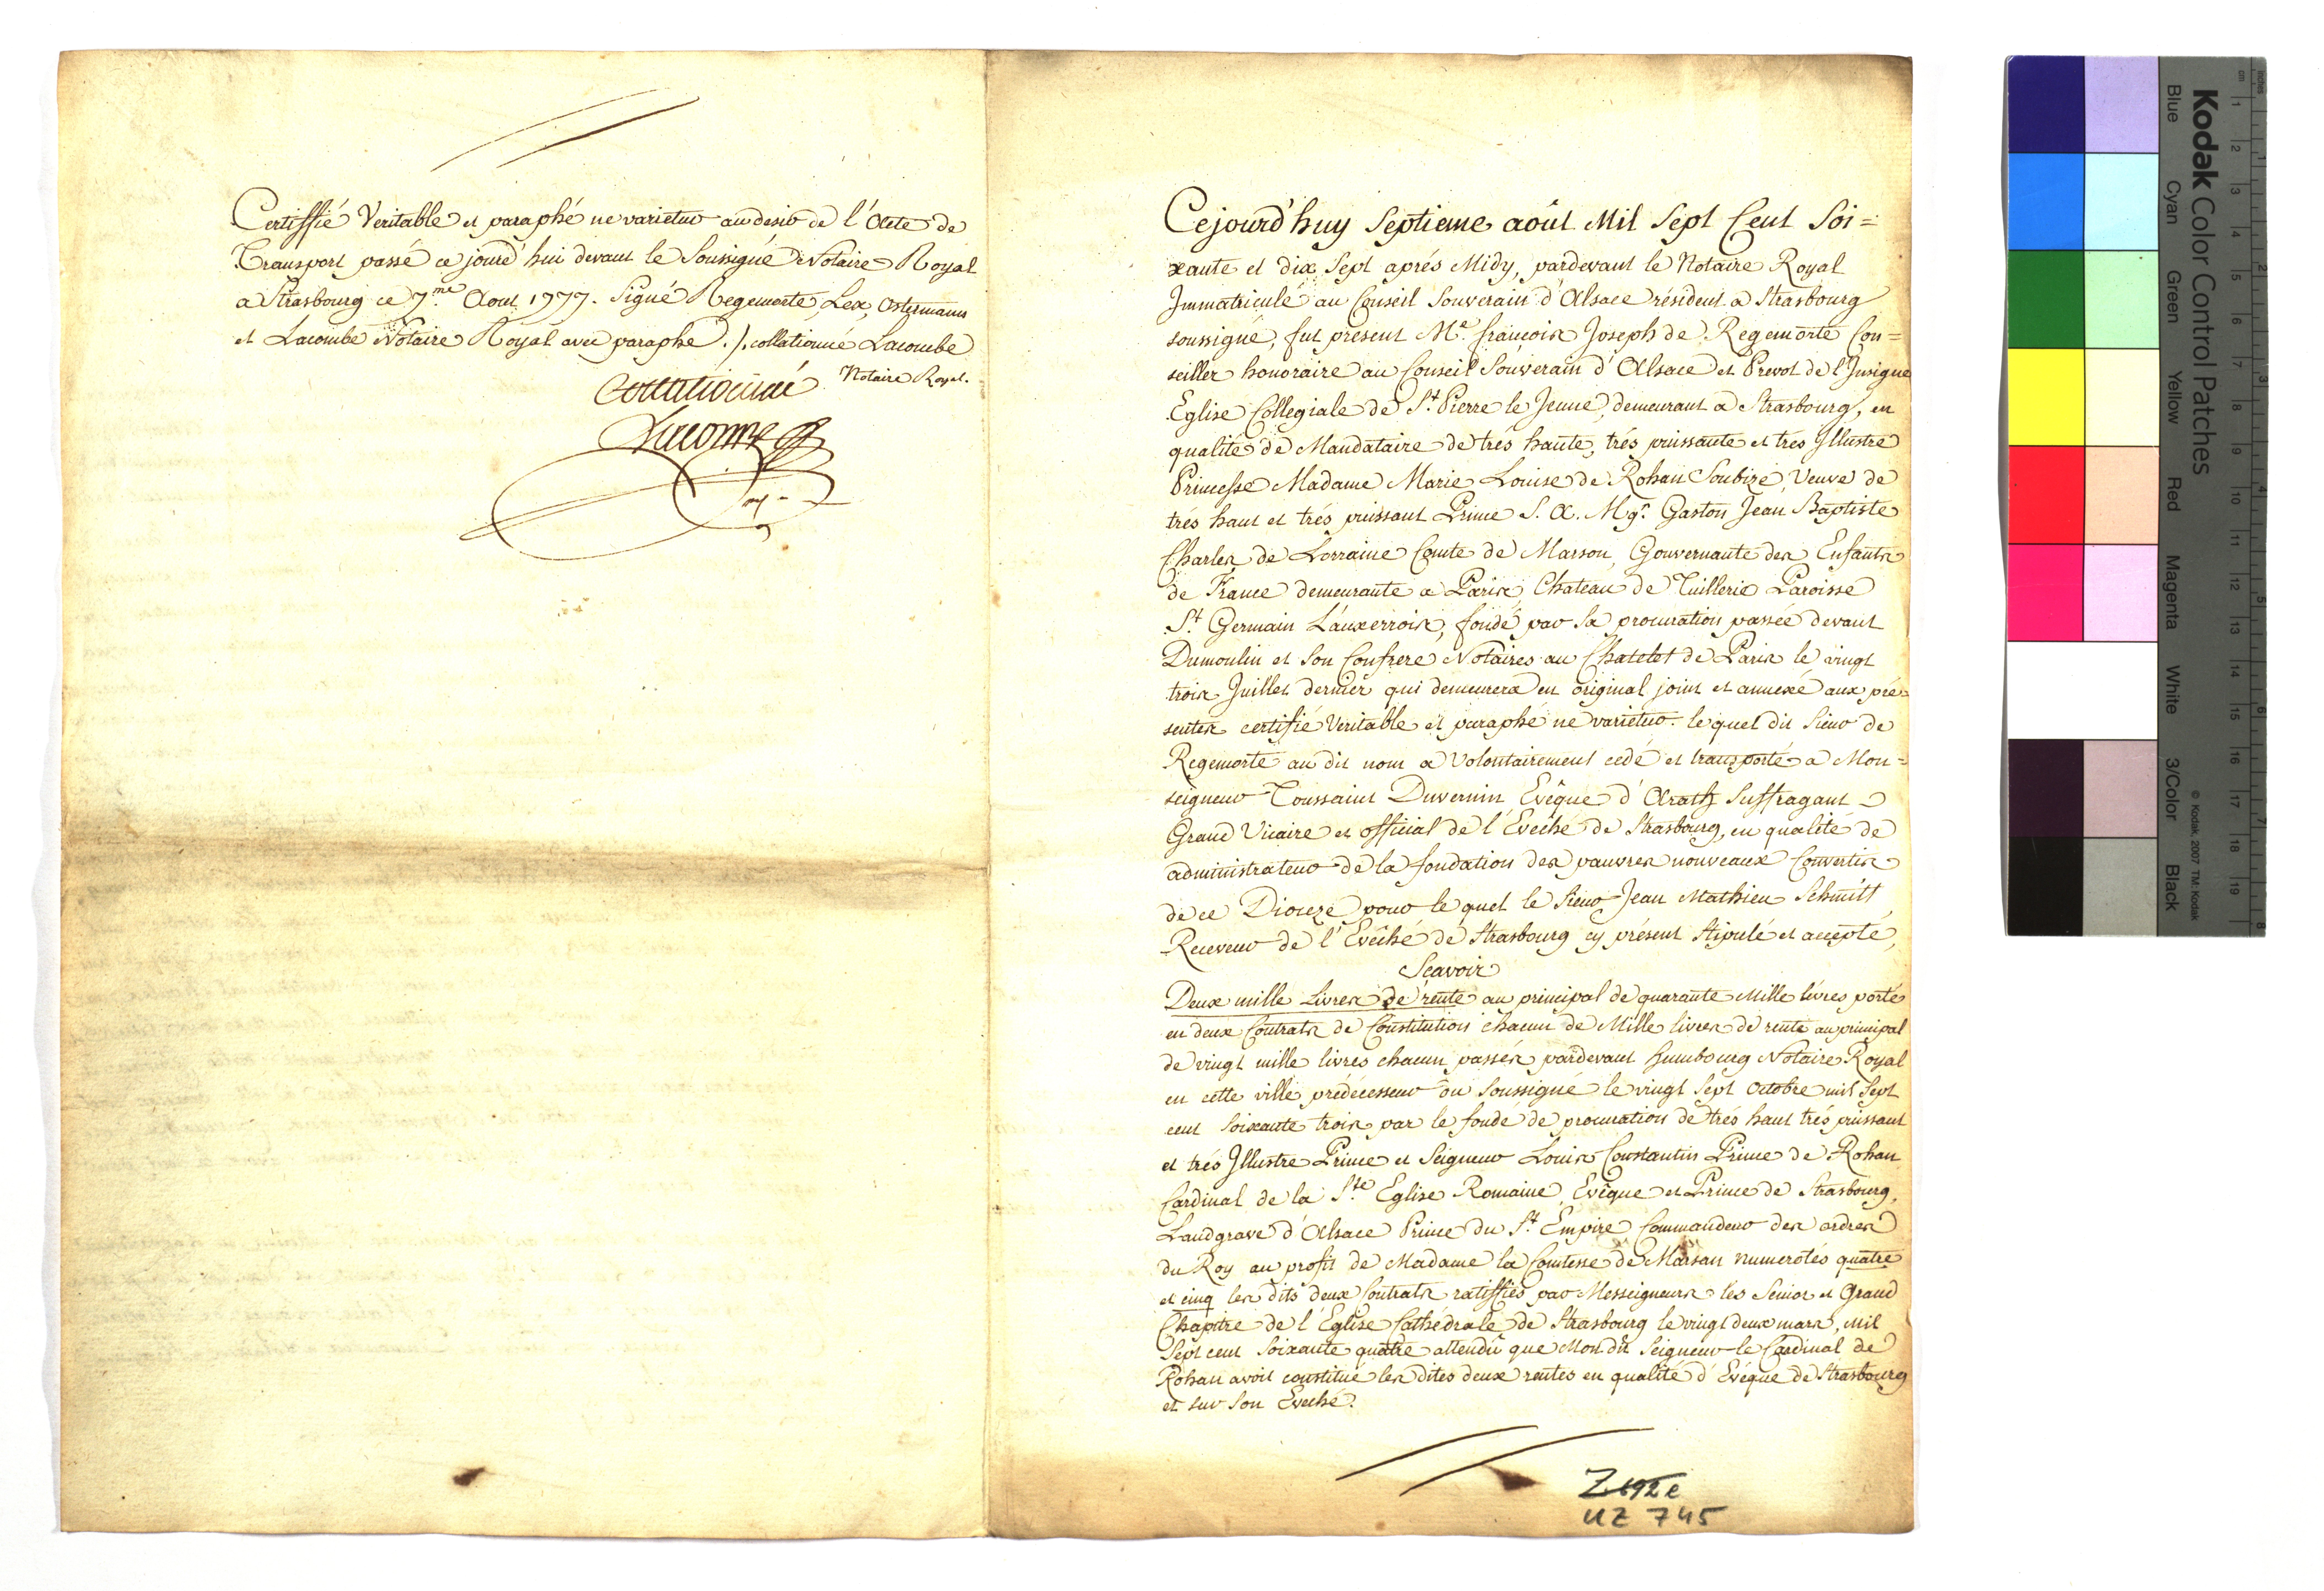 Certiffié Veritable et paraphé ne varietur au desir de l'Acte de
Transport passé ce jourd'hui devant le Soussigné Notaire Royal
a Strasbourg ce 7.me Aout 1777. Signé Regemorte, Lex, Ostermann
et Lacombe Notaire Royal avec paraphe ./. collationné Lacombe
Notaire Royal.
Collationné
Lacombe
Cejourd'huy Septieme août Mil Sept Cent Soi=
xante et dix Sept aprés Midy, pardevant le Notaire Royal
Immatriculé au Conseil Souverain d'Alsace résident a Strasbourg
soussigné, fut présent Mr. françois Joseph de Regemorte Con=
seiller honoraire au Conseil Souverain d'Alsace et Prevot de l'Insigne
Eglise Collegiale de St. Pierre le Jeune, demeurant a Strasbourg, en
qualité de Mandataire de trés haute, trés puissante et trés Illustre
Princesse Madame Marie Louise de Rohan Soubize, Veuve de
trés haut et trés puissant Prince S. A. Mgr. Gaston Jean Baptiste
Charles de Lorraine Comte de Marson, Gouvernante des Enfants
de France demeurante a Paris, Chateau de Tuillerie Paroisse
St. Germain L'auxerrois, fondé par Sa procuration passée devant
Dumoulin et Son Confrere Notaires au Chatelet de Paris le vingt
trois Juillet dernier qui demeurera en original joint et annexé aux pré=
sentes certifié Veritable et paraphé ne varietur. le quel dit Sieur de
Regemorte au dit nom a Volontairement cedé et transporté a Mon=
seigneur Toussaint Duvernin Evêque d'Arath Suffragant
Grand Vicaire et official de l'Evêché de Strasbourg, en qualité de
administrateur de la fondation des pauvres nouveaux Convertis
de ce Dioceze pour le quel le Sieur Jean Mathieu Schmitt,
Receveur de l'Evêché de Strasbourg cy présent Stipulé et accepté,
Scavoir
Deux mille Livres de rente au principal de quarante Mille livres porté
en deux Contrats de Constitution chacun de Mille livres de rente au principal
de vingt mille livres chacun passés pardevant Humbourg Notaire Royal
en cette ville prédecesseur du Soussigné le vingt Sept Octobre mil Sept
cent Soixante trois par le fondé de procuration de trés haut trés puissant
et trés Illustre Prince et Seigneur Louis Constantin Prince de Rohan
Cardinal de la Ste. Eglise Romaine, Evêque et Prince de Strasbourg,
Landgrave d'Alsace Prince du St. Empire, Commandeur des ordres
du Roy au profit de Madame la Comtesse de Marsan numerotés quatre
et cinq les dits deux Contrats ratiffiés par Messeigneurs les Senior et Grand
Chapitre de l'Eglise Cathédrale de Strasbourg le vingt deux mars, mil
Sept cent Soixante quatre attendû que Mon dit Seigneur le Cardinal de
Rohan avoit constitué les dites deux rentes en qualité d'Evêque de Strasbourg
et sur Son Eveché.
Z 192e
UZ 745
Kodak Color Control Patches
Blue Cyan Green Yellow Red Magenta White 3/Color Black
© Kodak, 2007 TM: Kodak
cm 1 2 3 4 5 6 7 8 9 10 11 12 13 14 15 16 17 18 19
inches 1 2 3 4 5 6 7 8